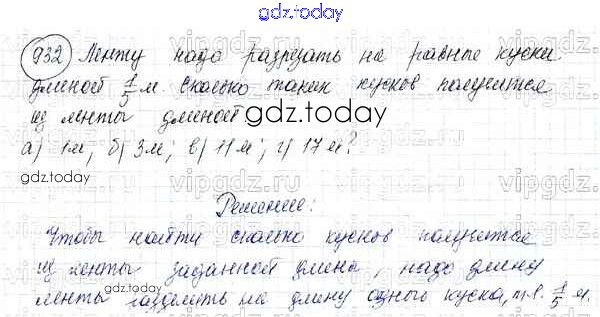 gdz.today
932 Ленту надо разрезать на равные куски
длиной 1/5 м. Сколько таких кусков получится
из ленты длиной
gdz.today
а) 1м; б) 3м; в) 11м; г) 17м?
gdz.today
vipgdz.ru
Решение:
Чтобы найти сколько кусков получится
из ленты заданной длины, надо длину
ленты разделить на длину одного куска, т.е. 1/5 м.
gdz.today